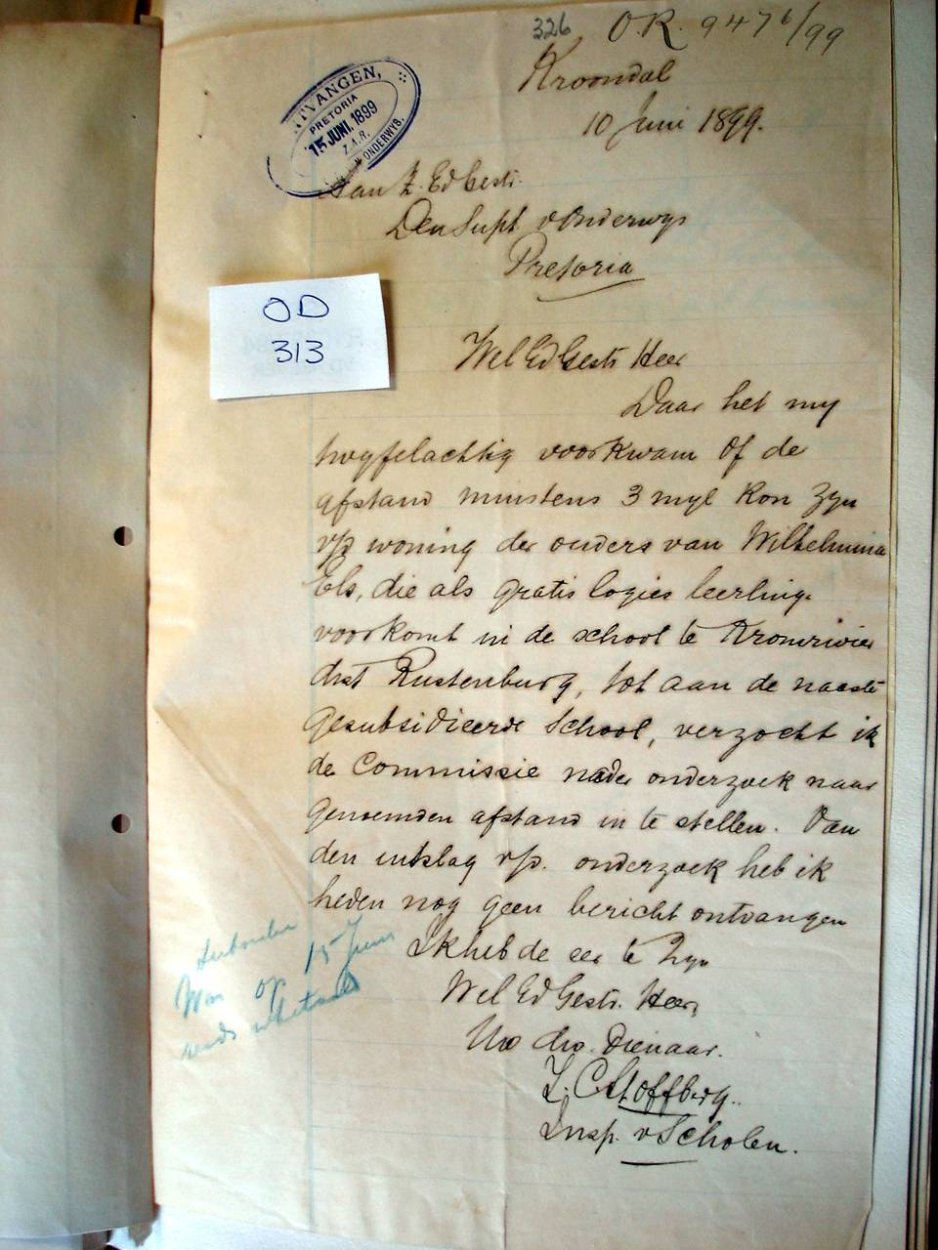 326 O.R. 9476/99
Kroondal
10 Juni 1899.
NTVANGEN,
PRETORIA
15 JUNI. 1899
Z.A.R.
ONDERWYS.
Aan Z. EdGestr.
Den Supt v Onderwys
Pretoria
OD
313
Wel Ed Gestr Heer
Daar het my
twyfelachtig voorkwam of de
afstand minstens 3 myl kon zyn
v/d woning der ouders van Wilhelmina
Els, die als gratis logies leerling
voorkomt in de school te Kromrivier
dist Rustenburg, tot aan de naaste
gesubsidieerde School, verzocht ik
de Commissie nader onderzoek naar
genoemden afstand in te stellen. Van
den uitslag v/d. onderzoek heb ik
heden nog geen bericht ontvangen
Ik heb de eer te Zyn
Wel Ed Gestr. Heer,
Uw dw. Dienaar.
Z. C Stoffberg.
Insp. v Scholen.
op 15 Juni